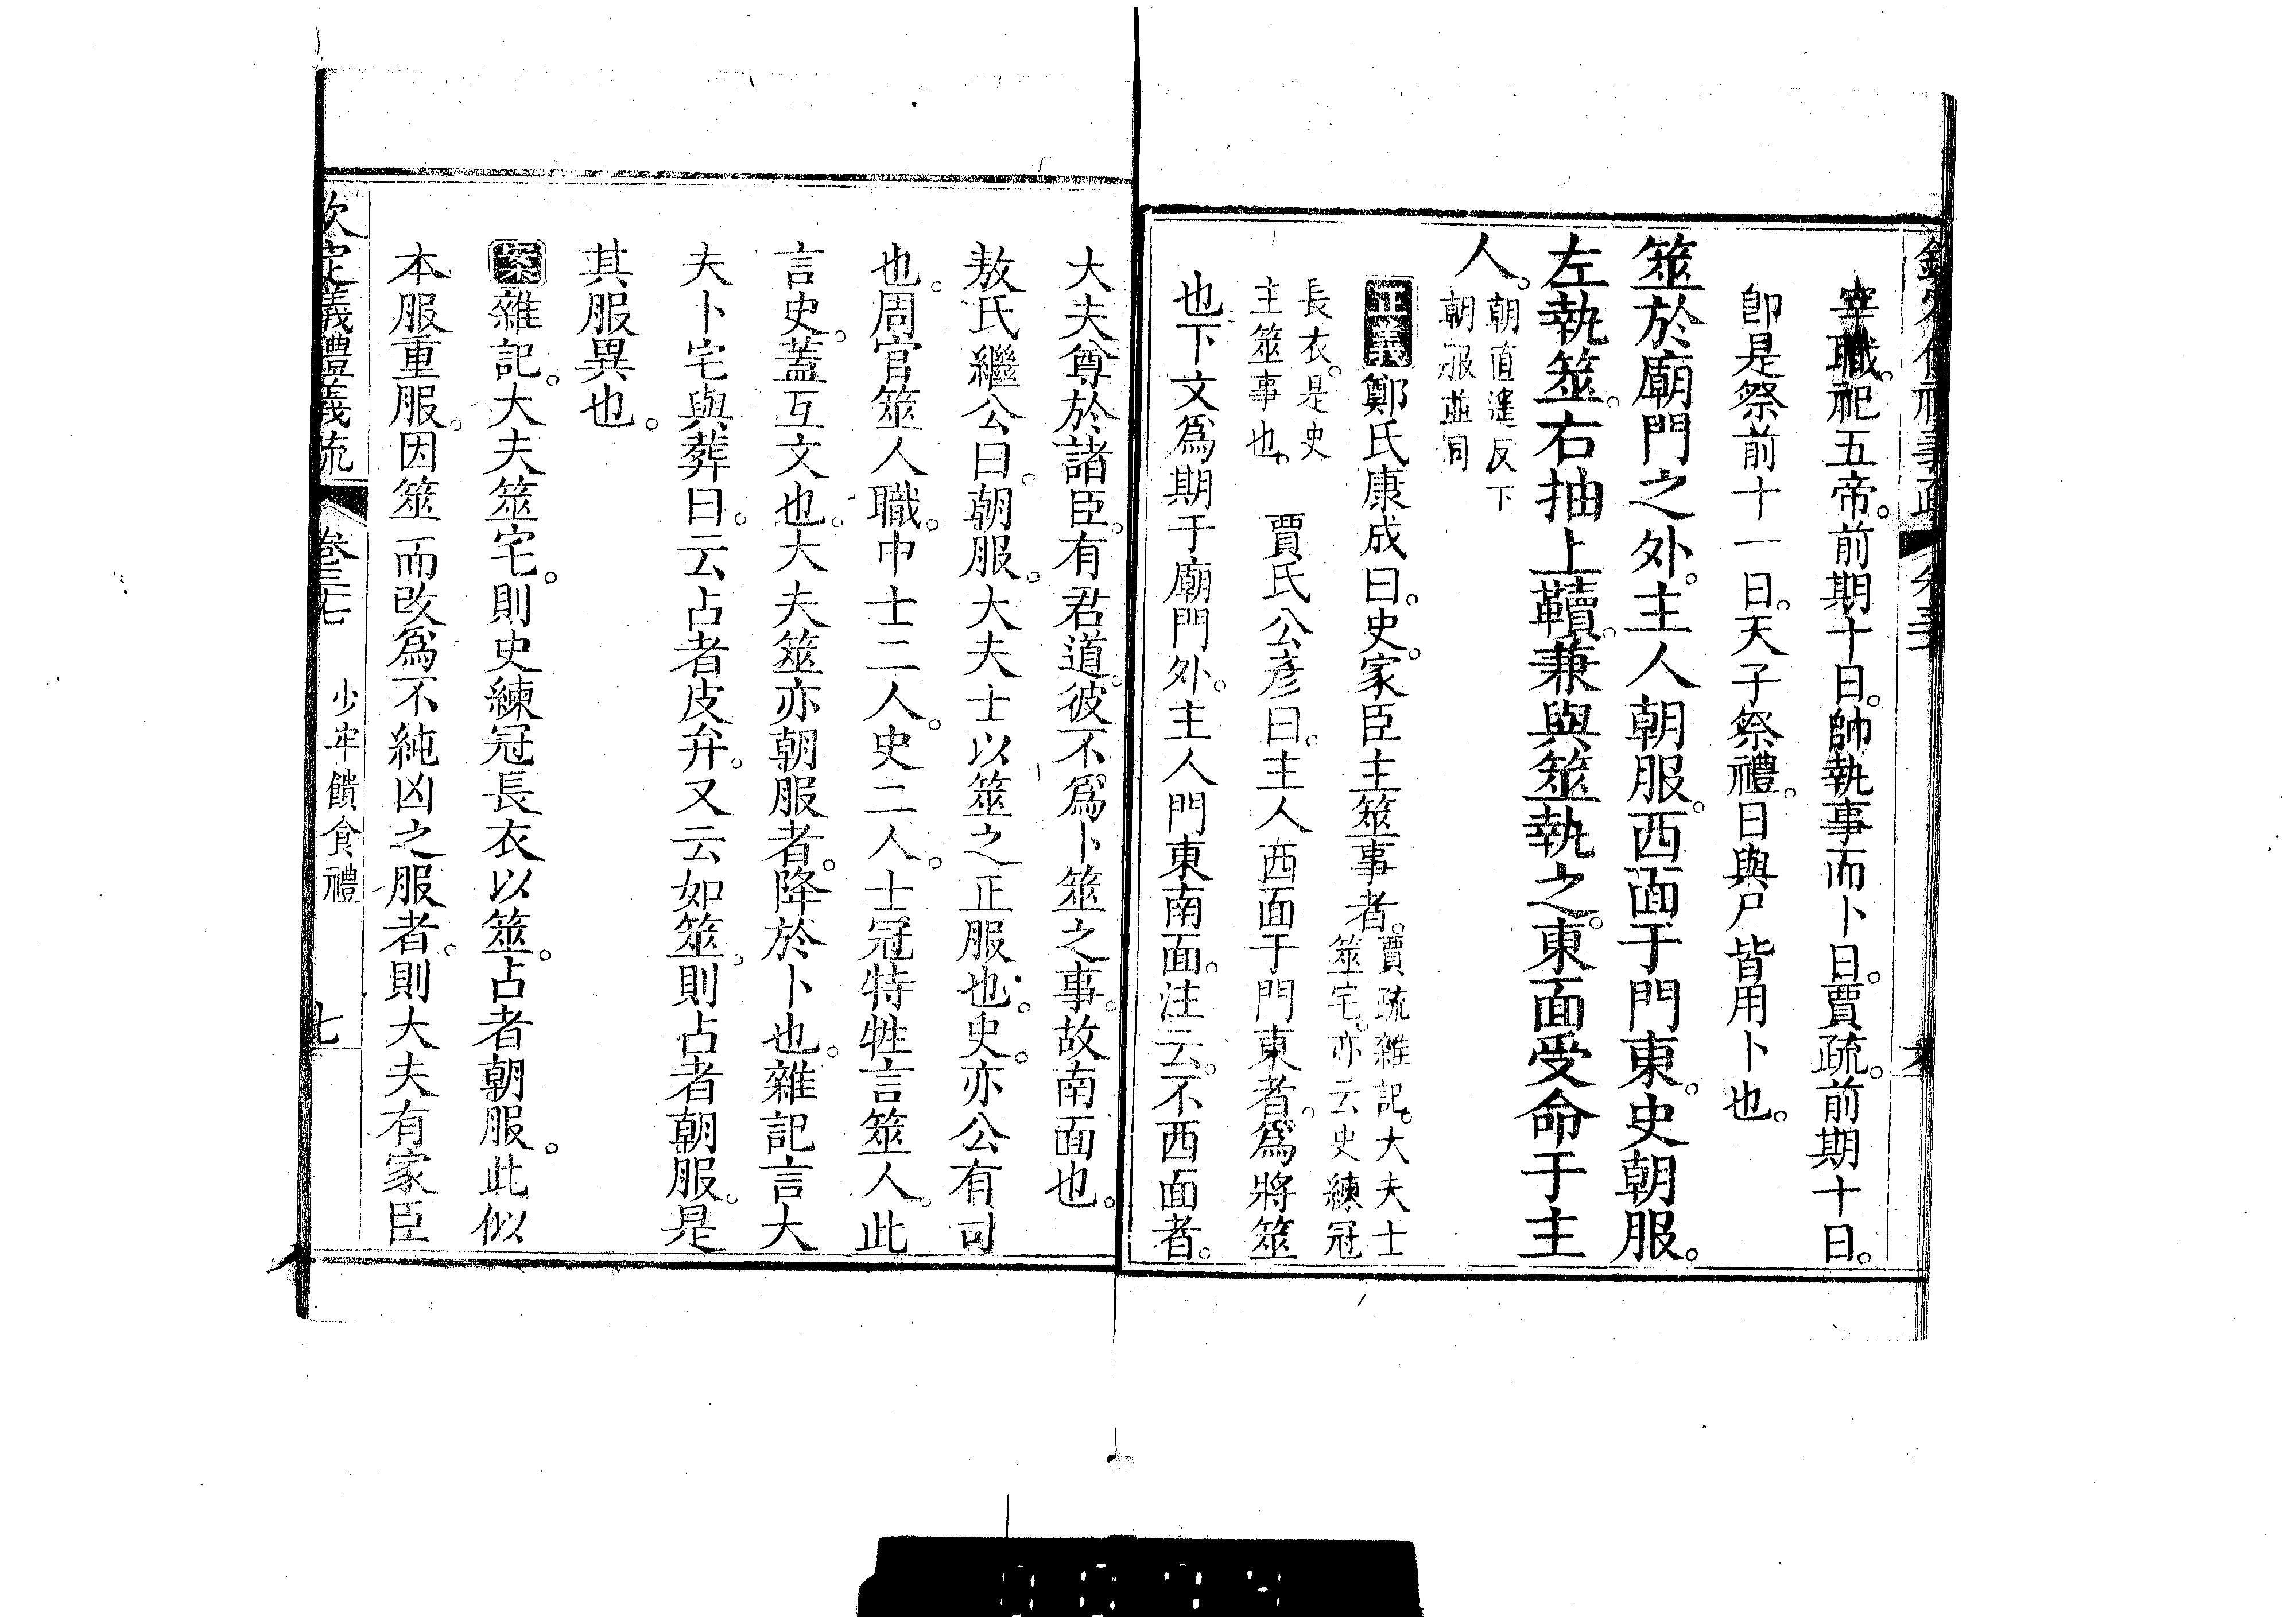 宰職。祀五帝。前期十日。帥執事而卜日。賈疏。前期十日。
卽是祭前十一日。天子祭禮。日與尸皆用卜也。
筮於廟門之外。主人朝服。西面于門東。史朝服。
左執筮。右抽上韇。兼與筮執之。東面受命于主
人。朝直遙反下
朝服並同
正義鄭氏康成曰。史。家臣主筮事者。賈疏雜記。大夫士
筮宅。亦云史練冠
長衣。是史
主筮事也。 賈氏公彥曰。主人西面于門東者。爲將筮
也。下文爲期于廟門外。主人門東南面。注云。不西面者。
大夫尊於諸臣。有君道。彼不爲卜筮之事。故南面也。
敖氏繼公曰。朝服。大夫士以筮之正服也。史。亦公有司
也。周官筮人職。中士二人。史二人。士冠特牲言筮人。此
言史。蓋互文也。大夫筮亦朝服者。降於卜也。雜記言大
夫卜宅與葬日。云占者皮弁。又云如筮。則占者朝服。是
其服異也。
案雜記。大夫筮宅。則史練冠長衣以筮。占者朝服。此似
本服重服。因筮而改爲不純凶之服者。則大夫有家臣
欽定儀禮義疏 卷三七 少牢饋食禮 七